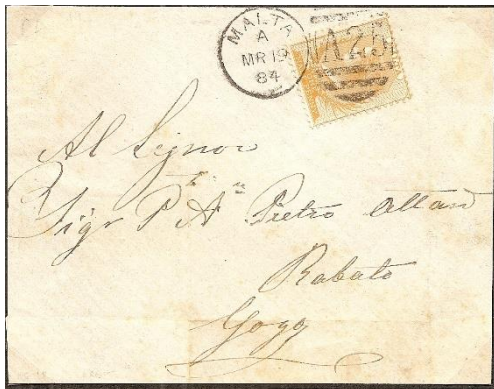 MALTA
A
MR 19
84
A25
Al Signor
Sigr P. A. Pietro Attard
Rabato
Gozo